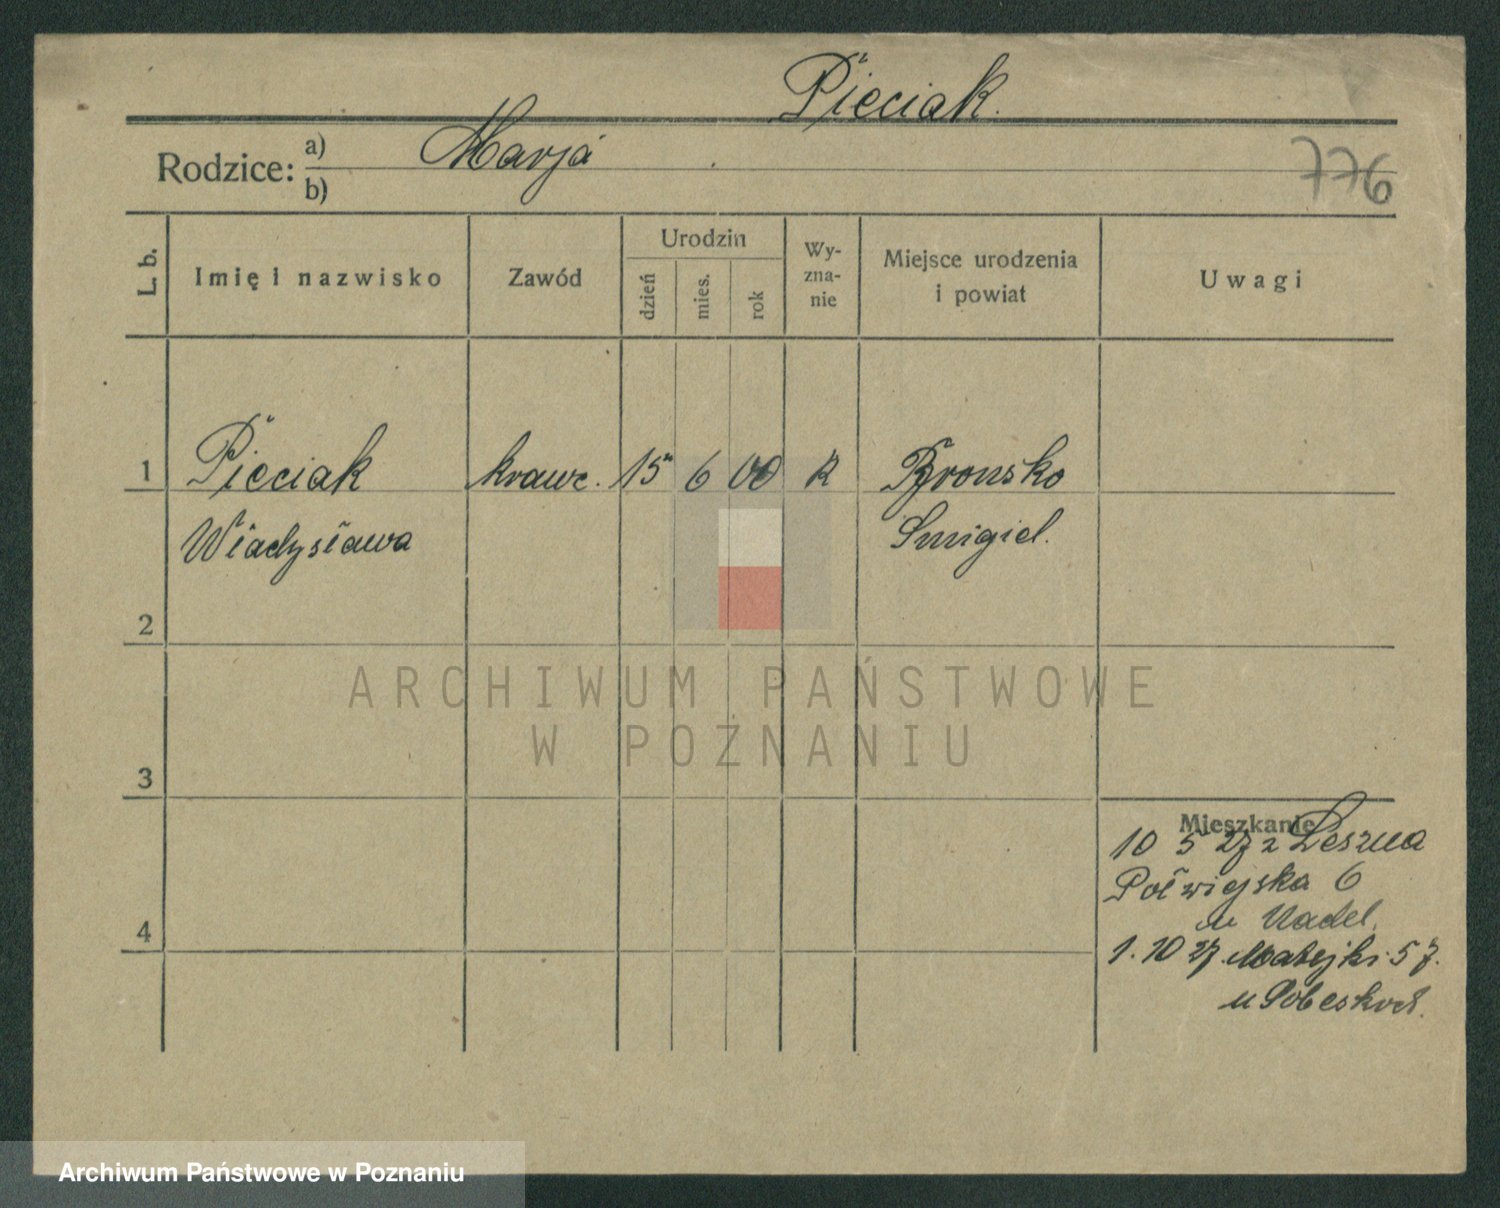 Pieciak.
Rodzice: a) Marja
b)
776
L. b.
Imię i nazwisko
Zawód
Urodzin
dzień
mies.
rok
Wy-
zna-
nie
Miejsce urodzenia
i powiat
Uwagi
1 Pieciak krawc. 15 6 00 R Bronsko
Władysława Smigiel.
2
3
4
Mieszkanie
10 5 27 z Leszna
Półwiejska 6
u Nadel.
1. 10 27. Matejki 57.
ARCHIWUM PAŃSTWOWE
W POZNANIU
Archiwum Państwowe w Poznaniu